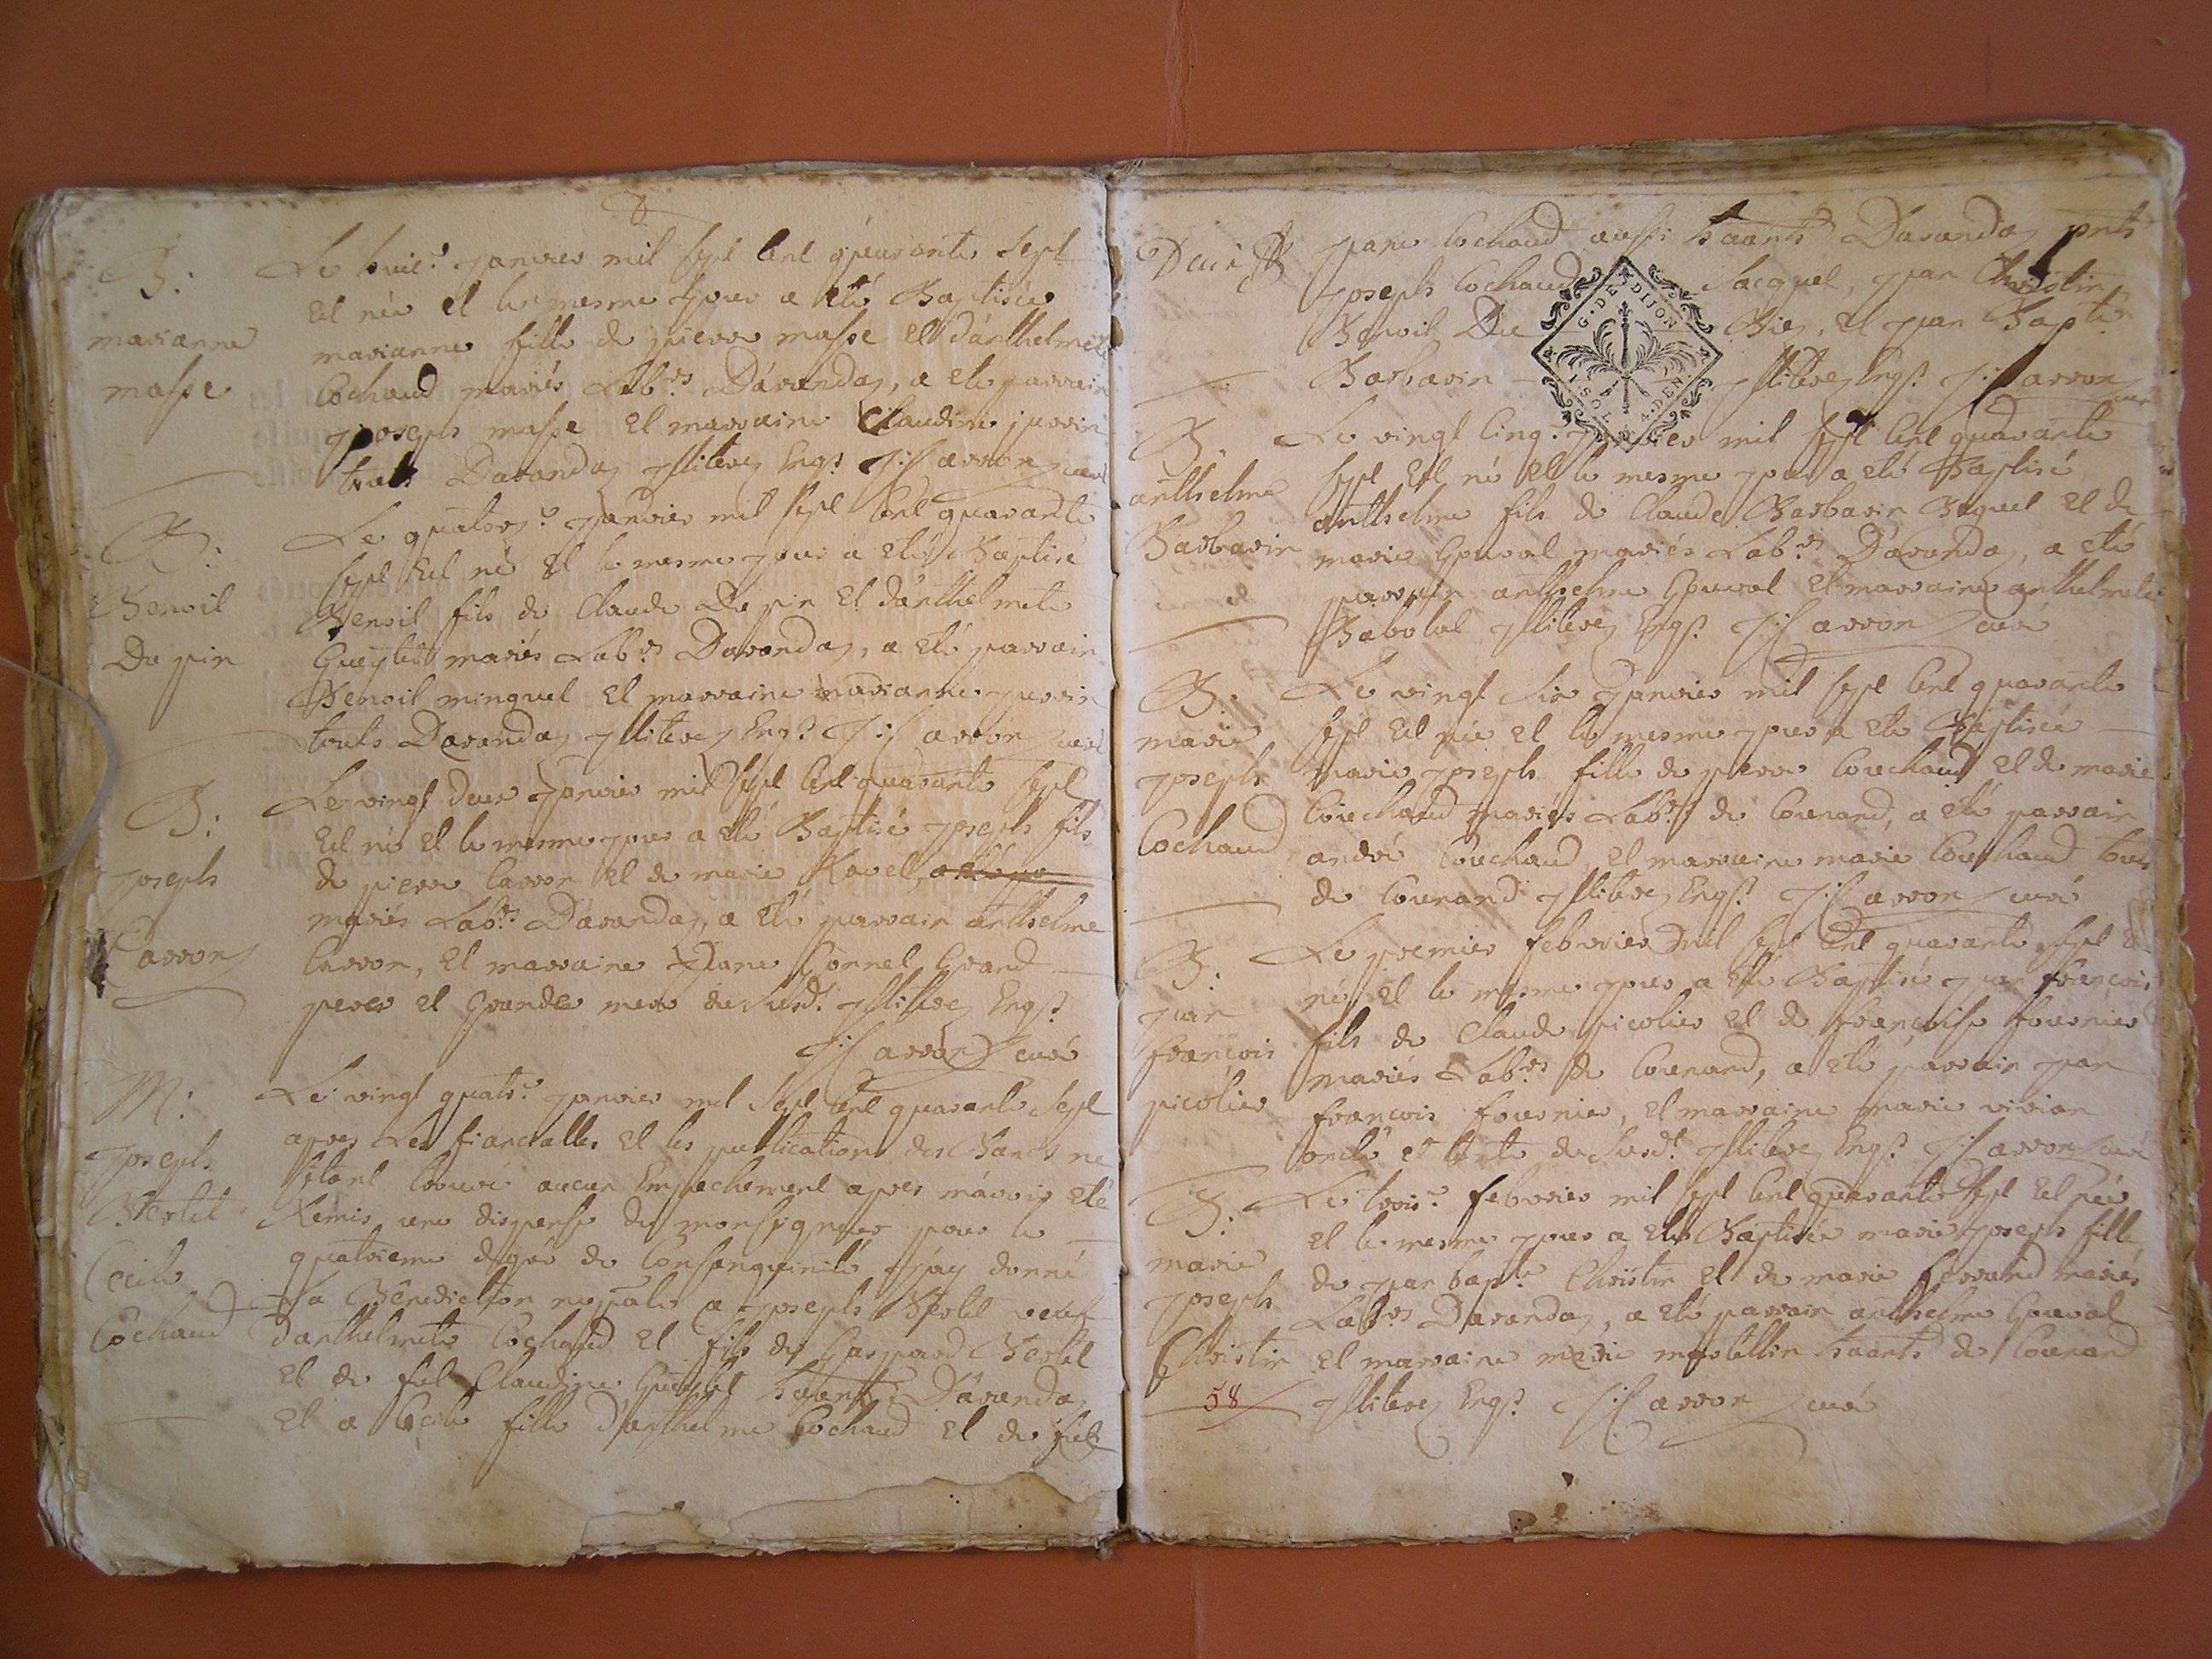 B:
marianne
masse
Le huit.e janvier mil sept cent quarante sept
Est née et le mesme jour a eté Baptisée
marianne fille de pierre masse et d'anthelmete
Cochaud mariés Lab.rs D'aranda, a eté parrain
joseph masse et marraine Claudine juvin
touts Daranda illiterez Enq.s J: Carron curé
B:
Benoit
Du pin
Le quatorz.e janvier mil sept cent quarante
sept Est né Et le mesme jour a eté Baptisé
Benoit fils de Claude Du pin Et d'anthelmete
mariés Lab.rs Daranda, a eté parrain
Benoit minguet et marraine marianne juvin
touts Daranda illiterez Enq.s J: Carron curé
B:
joseph
Carron
Le vingt deux janvier mil sept cent quarante sept
Est né Et le mesme jour a eté Baptisé joseph fils
de pierre Carron et de marie Ravel,
mariés Lab.rs D'aranda, a eté parrain anthelme
Carron, et marraine Jane Connel Grand
peres et Grande mere du susd.t illiterez Enq.s
J: Carron curé
M:
joseph
Bertet
Cecile
Cochaud
Le vingt quatr.e janvier mil sept cent quarante sept
apres Les fianсalles et les publications des Bancs ne
s'étant trouvé aucun Empechement apres m'avoir eté
Remis une dispense de monseigneur pour le
quatrieme degré de Consanguinité j'ay donné
La Bénediction nuptiale a joseph Bertet veuf
d'anthelmete Cochaud et fils de Gaspard Bertet
et de fut Claudine habants D'aranda,
et a Cecile fille d'anthelme Cochaud et de fut
jane Cochaud aussi haants Daranda, pnts
joseph Cochaud Jacquet, jean Christin
Benoit Du Biez, et jean Bapt.e
Barbarin illiterez Enq.s J: Carron curé
G. DE DIJON
1 SOL 4 DEN
B:
anthelme
Barbarin
Le vingt cinq.e janvier mil sept cent quarante
sept Est né Et le mesme jour a eté Baptisé
anthelme fils de Claude Barbarin Biguet et de
marie Gouval mariés Lab.rs D'aranda, a eté
parrain anthelme Gouval et marraine anthelmete
Babolat illiterez Enq.s J: Carron curé
B:
marie
joseph
Cochaud
Le vingt six janvier mil sept cent quarante
sept Est née et le mesme jour a eté Baptisée
marie joseph fille de pierre Couchaud et de marie
Couchaud mariés Lab.rs de Counand, a eté parrain
andré Couchaud, et marraine marie Couchaud touts
de Counand illiterez Enq.s J: Carron curé
B:
jean
françois
picolier
Le premier febvrier mil sept cent quarante sept Est
né Et le mesme jour a eté Baptisé jean françois
fils de Claude picolier et de françoise fournier
mariés Lab.rs de Counand, a eté parrain jean
françois fournier, et marraine marie vivian
oncle et tante du susd.t illiterez Enq.s J: Carron curé
B:
marie
joseph
Christin
Le trois.e febvrier mil sept cent quarante sept Est née
et le mesme jour a eté Baptisée marie joseph fille
de jean bapt.e Christin et de marie ferrand mariés
Lab.rs Daranda, a eté parrain anthelme Gouval
et marraine marie martellin haants de Counand
illiterez Enq.s J: Carron curé
58